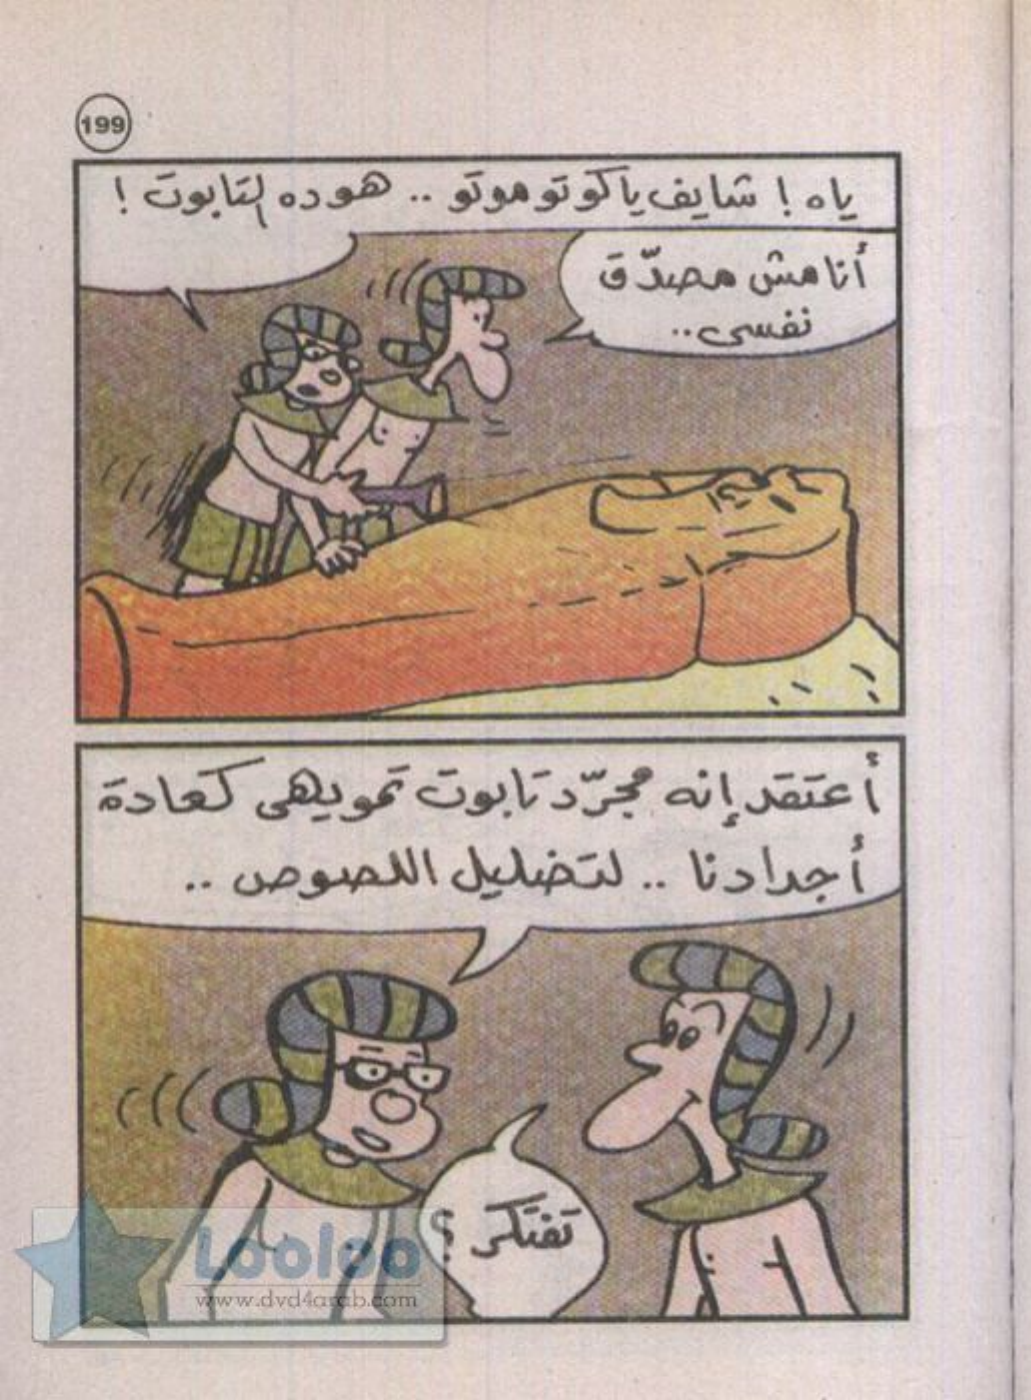 199
ياه ! شايف يا كوتوموتو .. هو ده التابوت !
أنا مش مصدّق
نفسى..
أعتقد إنه مجرّد تابوت تمويهى كعادة
أجدادنا .. لتضليل اللصوص ..
تفتكر ؟
Looloo
www.dvd4arab.com